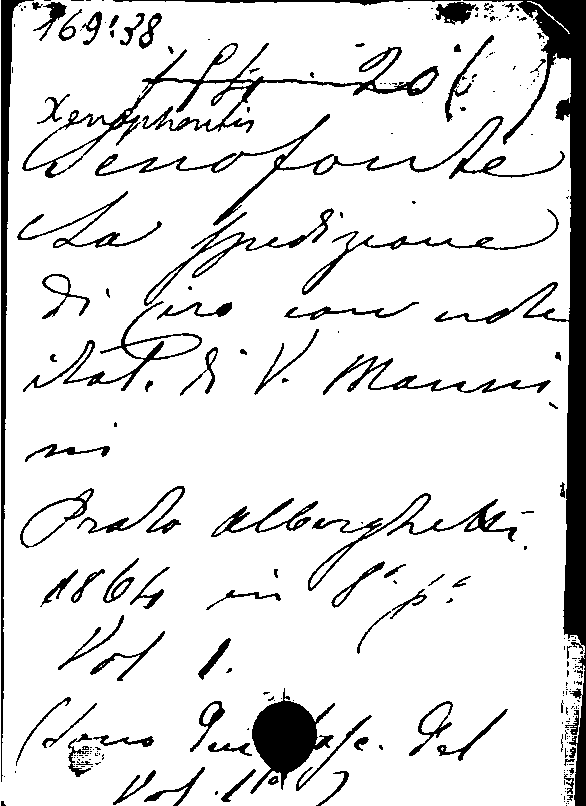 169:38
20 ( )
Xenophontis
Senofonte
La spedizione
di Ciro con note
ital. di V. Manni
ni
Prato Alberghetti
1864 in 8º pº
Vol 1.
(Sono Due fasc. del
Vol. 1º)